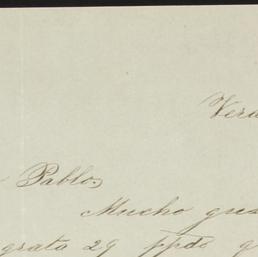 Vera
Pablo,
Mucho gus
grata 29 ppdo q